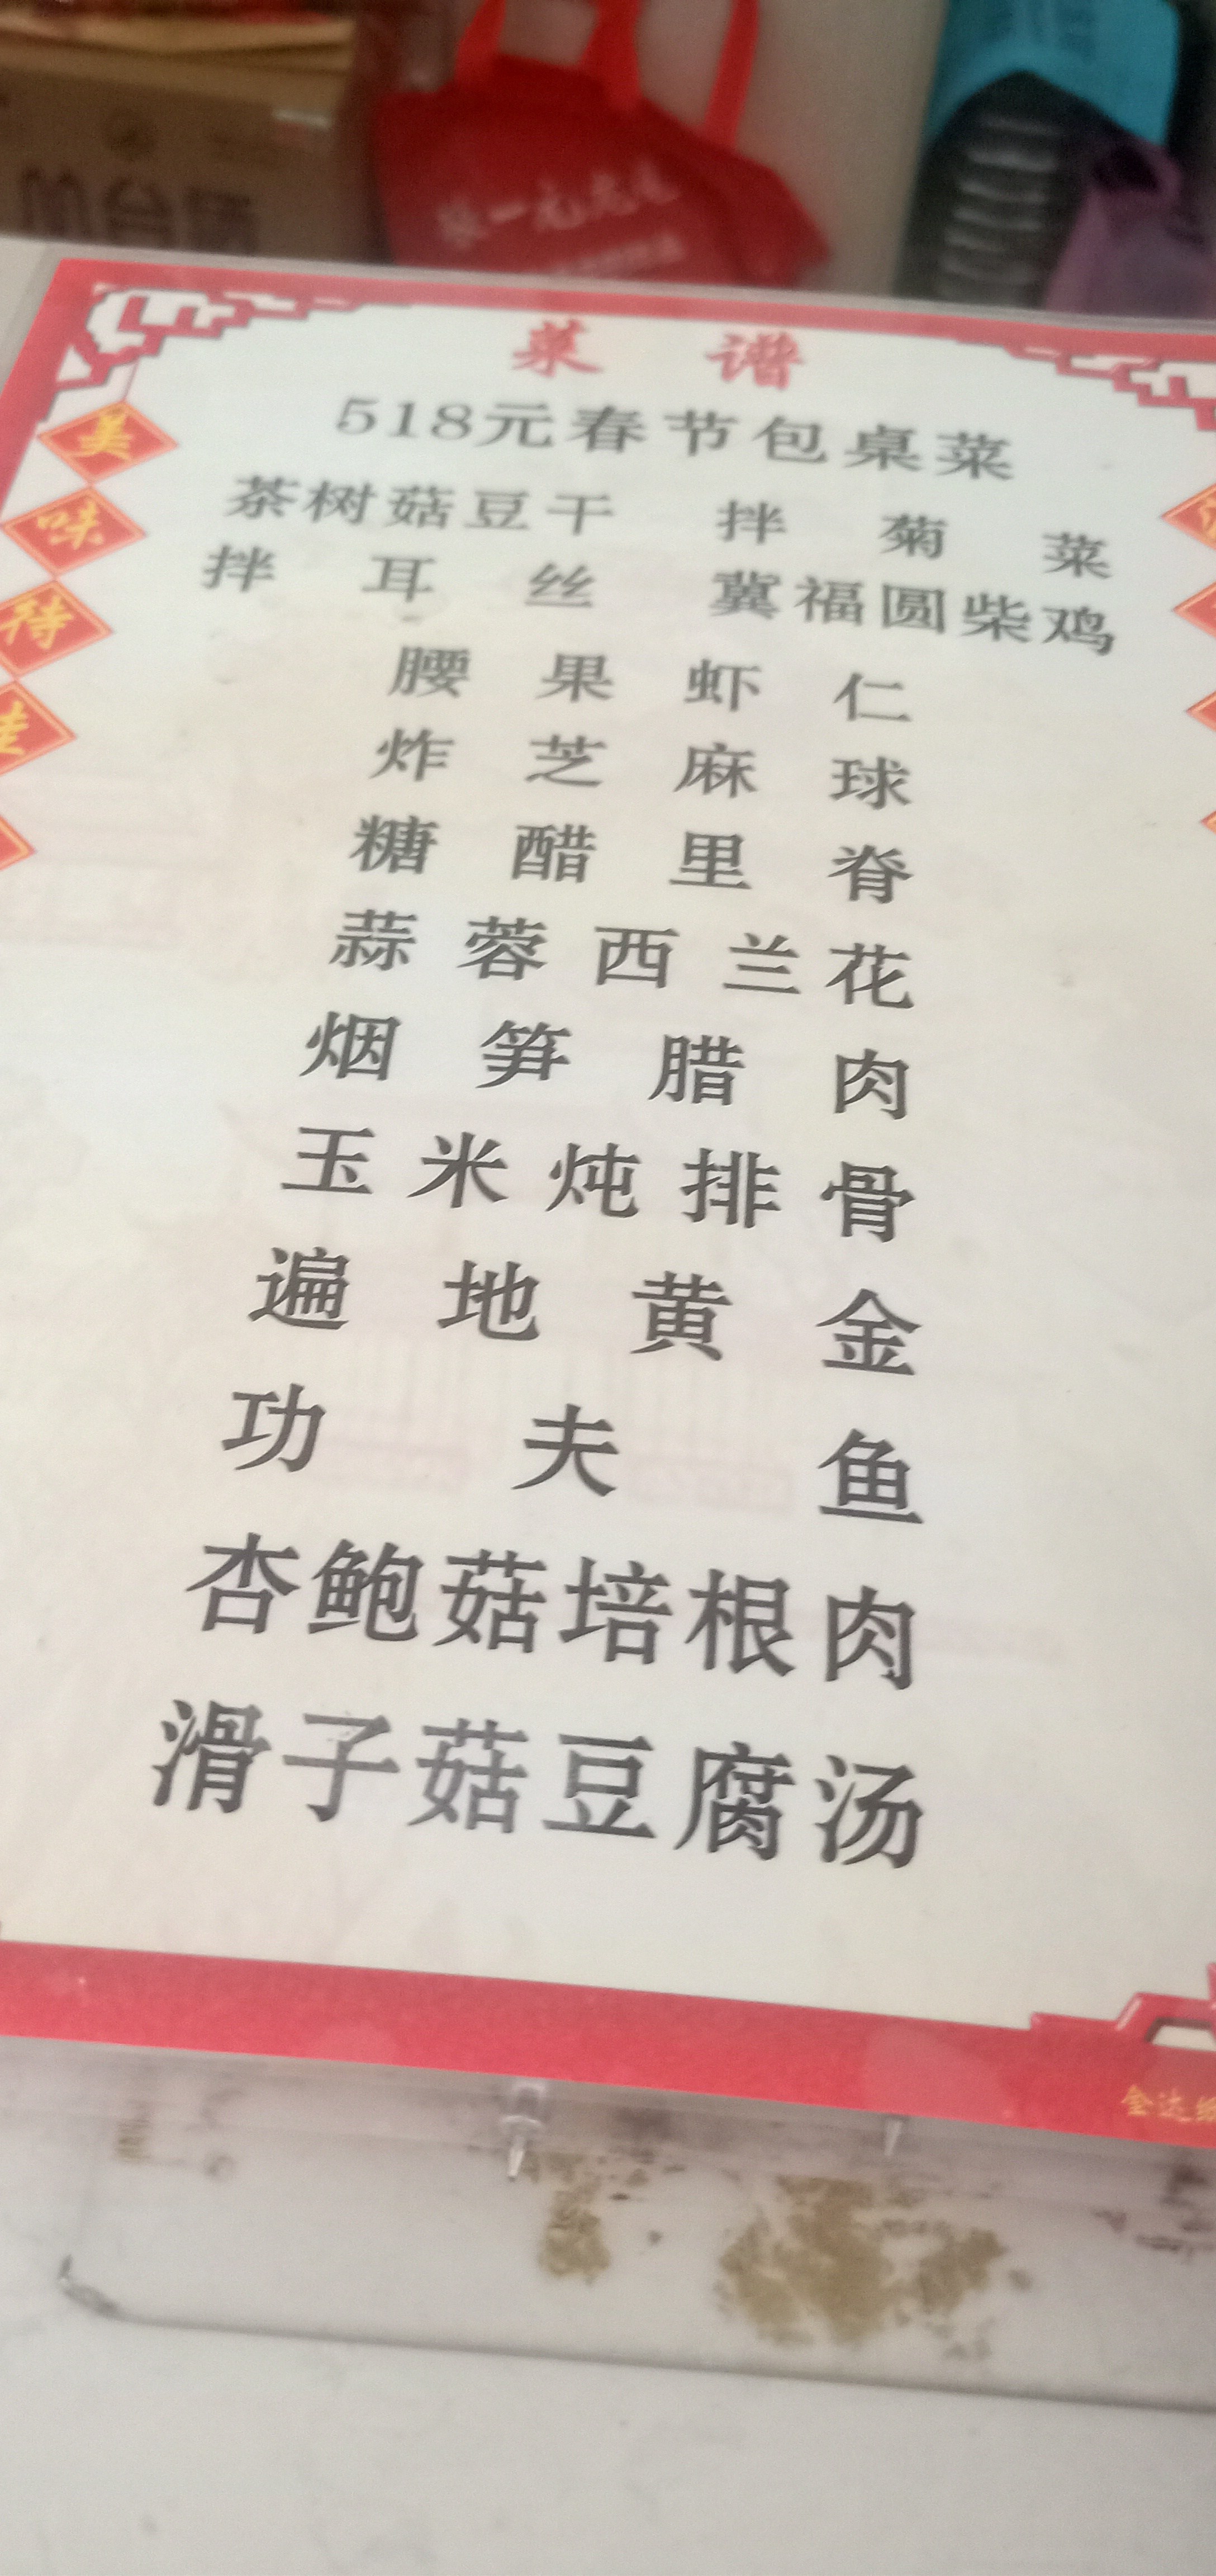 张一元
菜谱
518元春节包桌菜
茶树菇豆干 拌菊菜
拌耳丝 冀福圆柴鸡
腰果虾仁
炸芝麻球
糖醋里脊
蒜蓉西兰花
烟笋腊肉
玉米炖排骨
遍地黄金
功夫鱼
杏鲍菇培根肉
滑子菇豆腐汤
美
味
待
金达纸